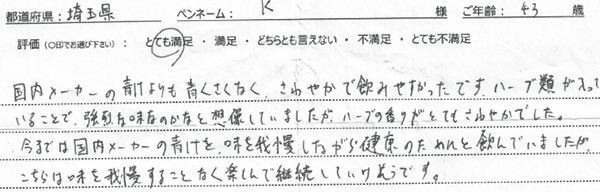 都道府県：埼玉県 ペンネーム：K 様 ご年齢：43 歳
評価（○印でお選び下さい）： とても満足 ・ 満足 ・ どちらとも言えない ・ 不満足 ・ とても不満足
国内メーカーの青汁よりも青くさくなく、さわやかで飲みやすかったです。ハーブ類が入って
いることで、強烈な味なのかなと想像していましたが、ハーブの香りがとてもさわやかでした。
今までは国内メーカーの青汁を、味を我慢しながら健康のためれと飲んでいましたが、
こちらは味を我慢することなく楽しんで継続していけそうです。